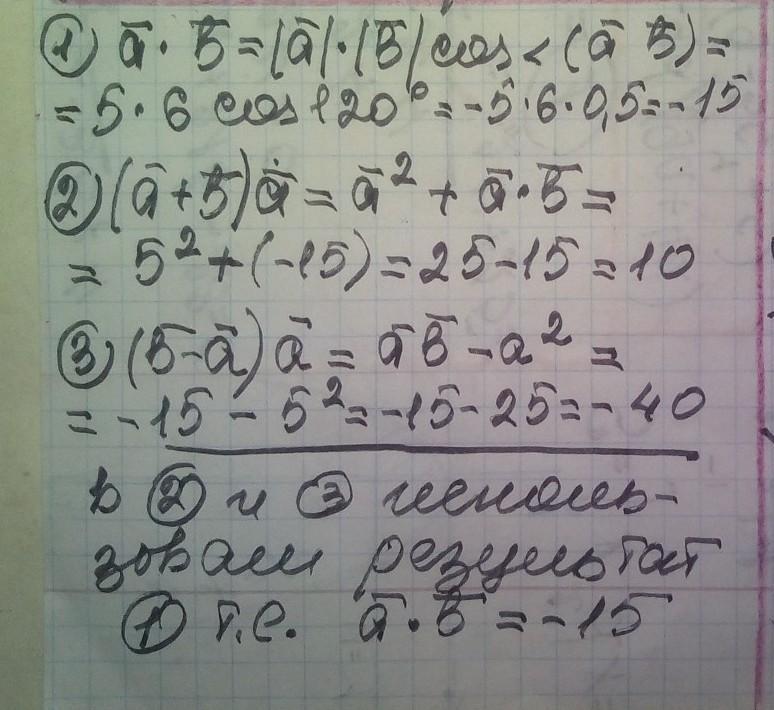 ① ā · b̄ = |ā| · |b̄| cos < (ā b̄) =
= 5 · 6 cos 120° = -5 · 6 · 0,5 = -15
② (ā + b̄) ā = ā² + ā · b̄ =
= 5² + (-15) = 25 - 15 = 10
③ (b̄ - ā) ā = ā b̄ - a² =
= -15 - 5² = -15 - 25 = -40
в ② и ③ исполь-
зовали результат
① т.е. ā · b̄ = -15